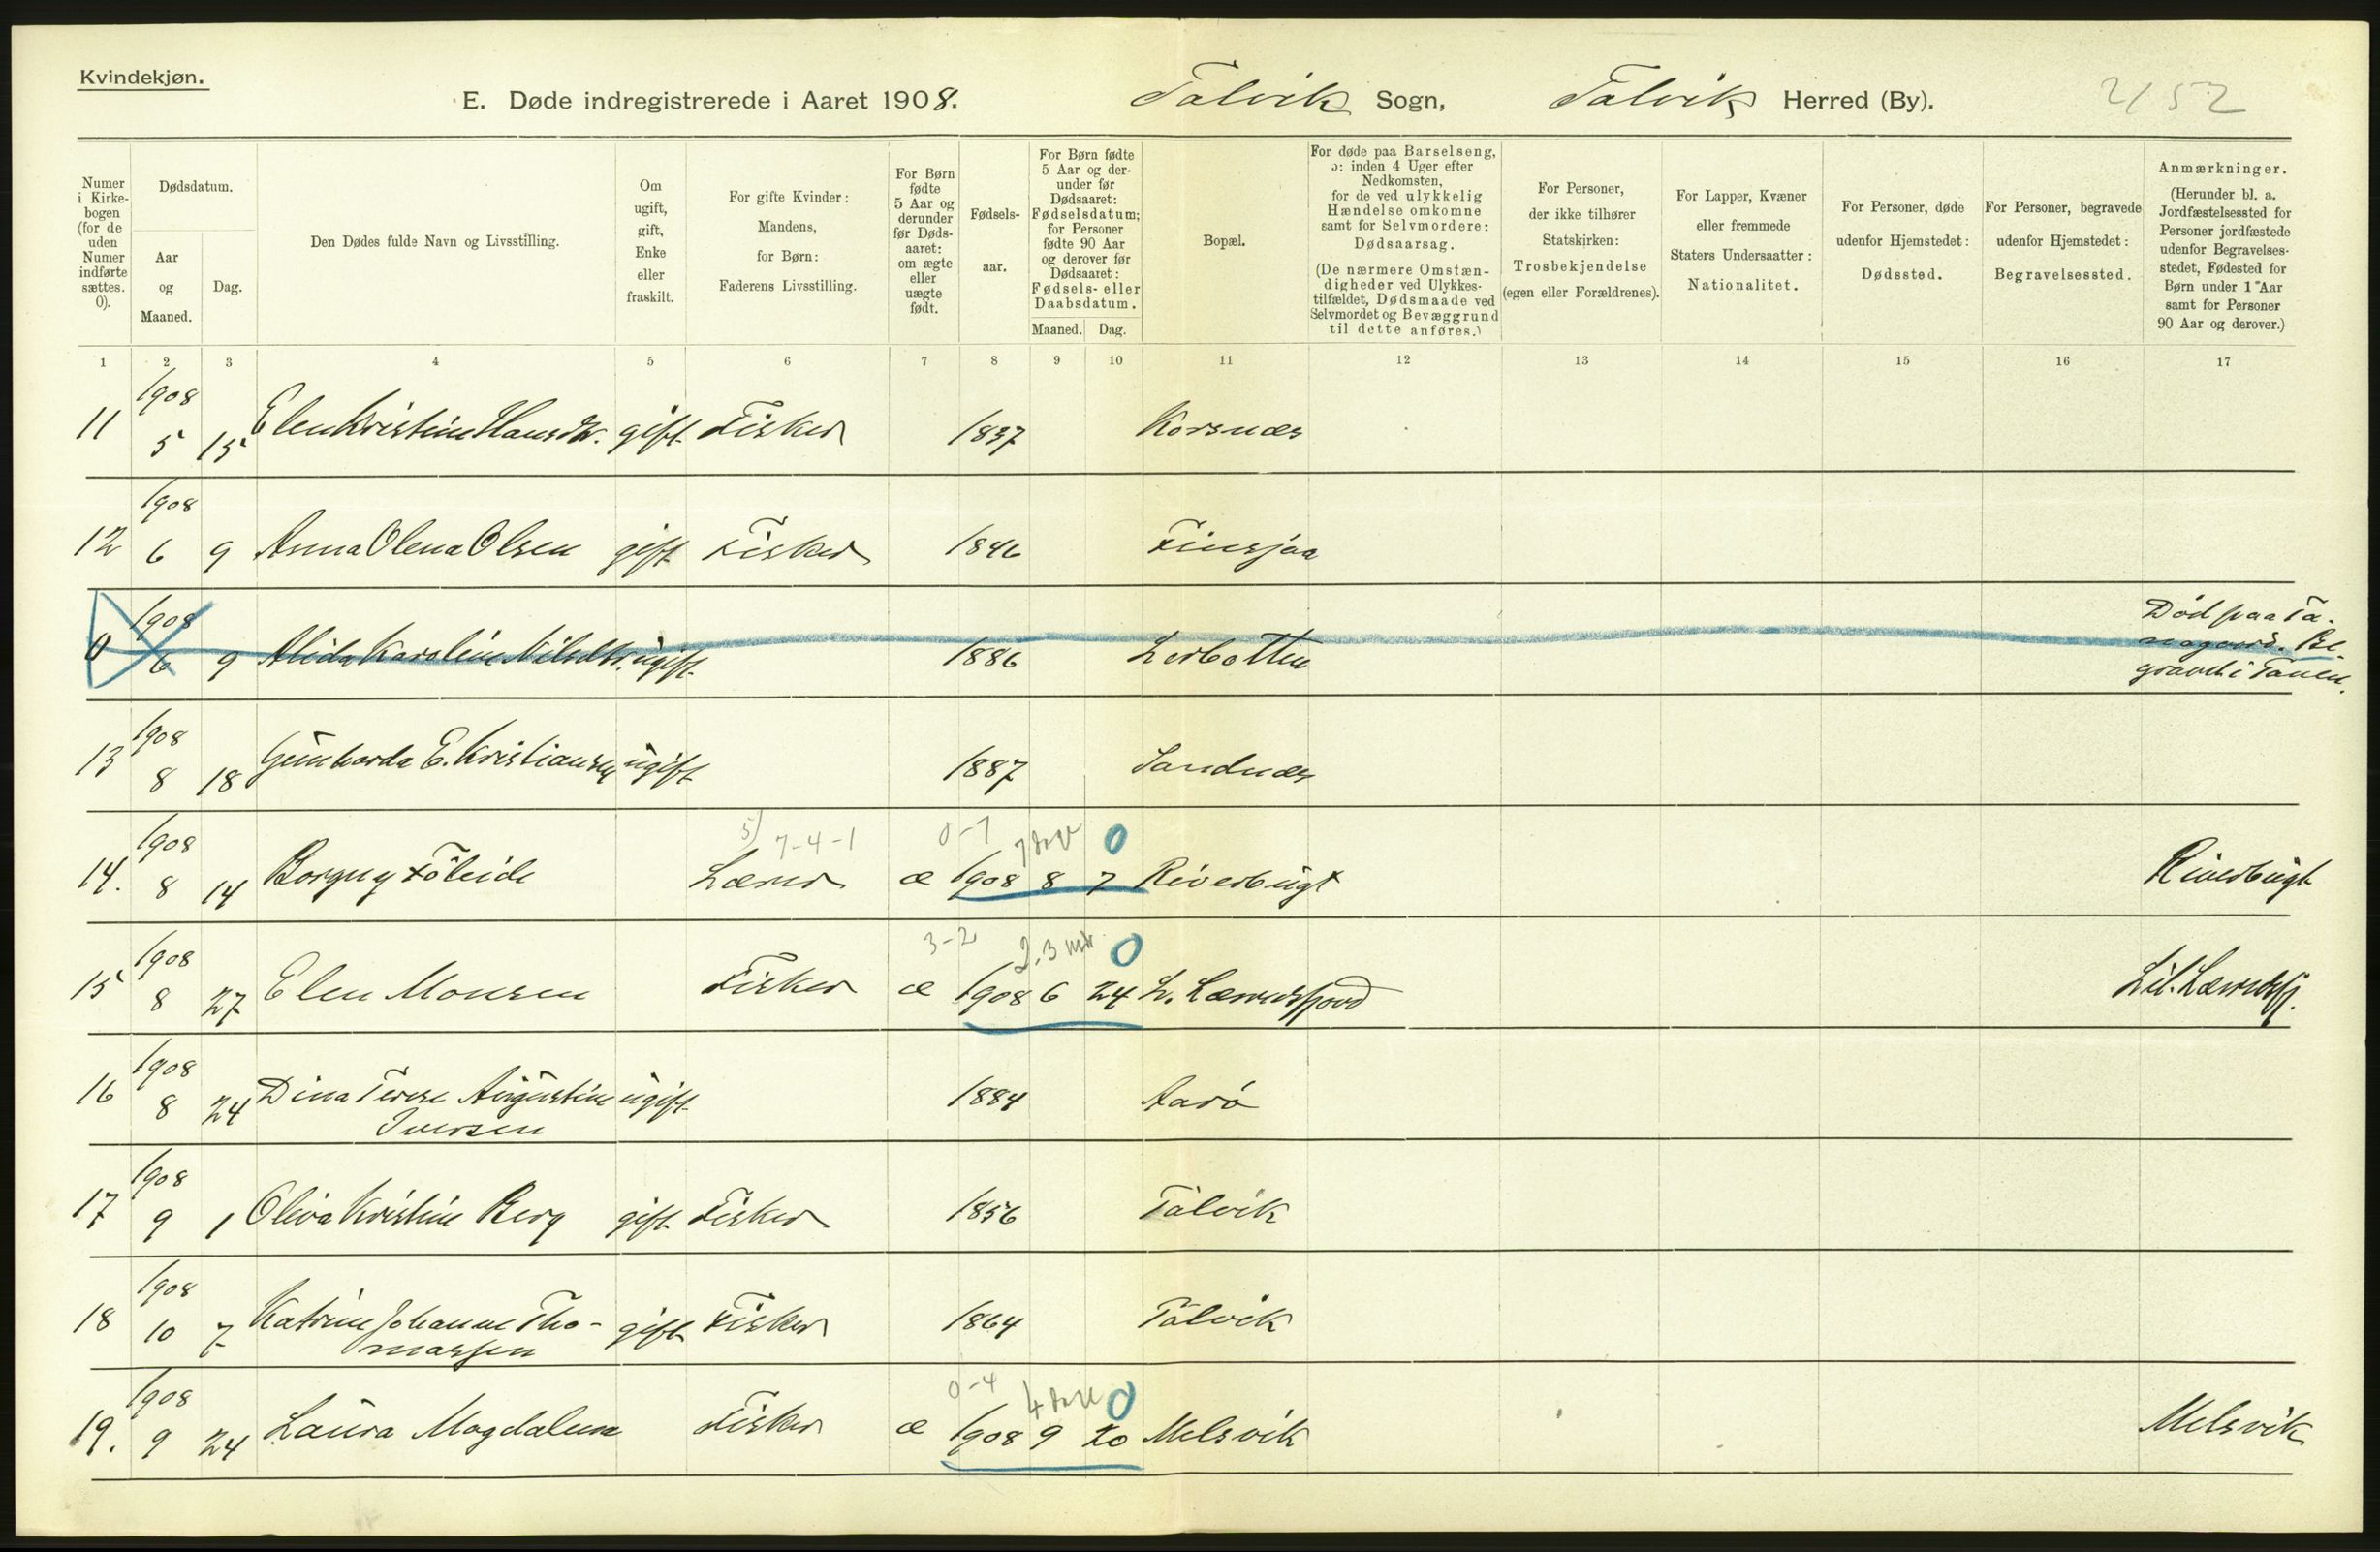 Kvindekjøn.
E. Døde indregistrerede i Aaret 1908. Talvik Sogn, Talvik Herred (By). 2/52
Numer i Kirke-bogen (for de uden Numer indførte sættes. 0).
Dødsdatum.
Aar og Maaned.
Dag.
Den Dødes fulde Navn og Livsstilling.
Om ugift, gift, Enke eller fraskilt.
For gifte Kvinder: Mandens, for Børn: Faderens Livsstilling.
For Børn fødte 5 Aar og derunder før Døds-aaret: om ægte eller uægte født.
Fødsels-aar.
For Børn fødte 5 Aar og der-under før Dødsaaret: Fødselsdatum; for Personer fødte 90 Aar og derover før Dødsaaret: Fødsels- eller Daabsdatum.
Maaned. Dag.
Bopæl.
For døde paa Barselseng, ɔ: inden 4 Uger efter Nedkomsten, for de ved ulykkelig Hændelse omkomne samt for Selvmordere: Dødsaarsag.
(De nærmere Omstæn-digheder ved Ulykkes-tilfældet, Dødsmaade ved Selvmordet og Bevæggrund til dette anføres.)
For Personer, der ikke tilhører Statskirken: Trosbekjendelse (egen eller Forældrenes).
For Lapper, Kvæner eller fremmede Staters Undersaatter: Nationalitet.
For Personer, døde udenfor Hjemstedet: Dødssted.
For Personer, begravede udenfor Hjemstedet: Begravelsessted.
Anmærkninger.
(Herunder bl. a. Jordfæstelsessted for Personer jordfæstede udenfor Begravelses-stedet, Fødested for Børn under 1 Aar samt for Personer 90 Aar og derover.)
1 2 3 4 5 6 7 8 9 10 11 12 13 14 15 16 17
1908
11 5 15 Elen Kristine Hansdtr. gift Fisker 1837 Korsnæs
1908
12 6 9 Anna Olena Olsen gift Fisker 1846
1908 Død paa Ta-
0 6 9 Alida Karoline Nilsdtr. ugift 1886 Lerbotten Be-
gravet i Tanen.
1908
13 8 18 E. Kristiansen ugift 1887 Sandnæs
1908 5) 7-4-1 0-7 0
14. 8 14 Borgny Lærer æ 1908 8 7 Riverbugt Riverbugt
1908 3-2 0
15 8 27 Elen Monsen Fisker æ 1908 6 24
1908
16 8 24 Dina Terese Augustine ugift 1884 Aarø
Iversen
1908
17 9 1 Oliva Kristine Berg gift Fisker 1856 Talvik
1908
18 10 7 Katrine Johanne Tho- gift Fisker 1864 Talvik
massen
1908 0-4 0
19. 9 24 Laura Magdalena Fisker æ 1908 9 20 Melsvik Melsvik